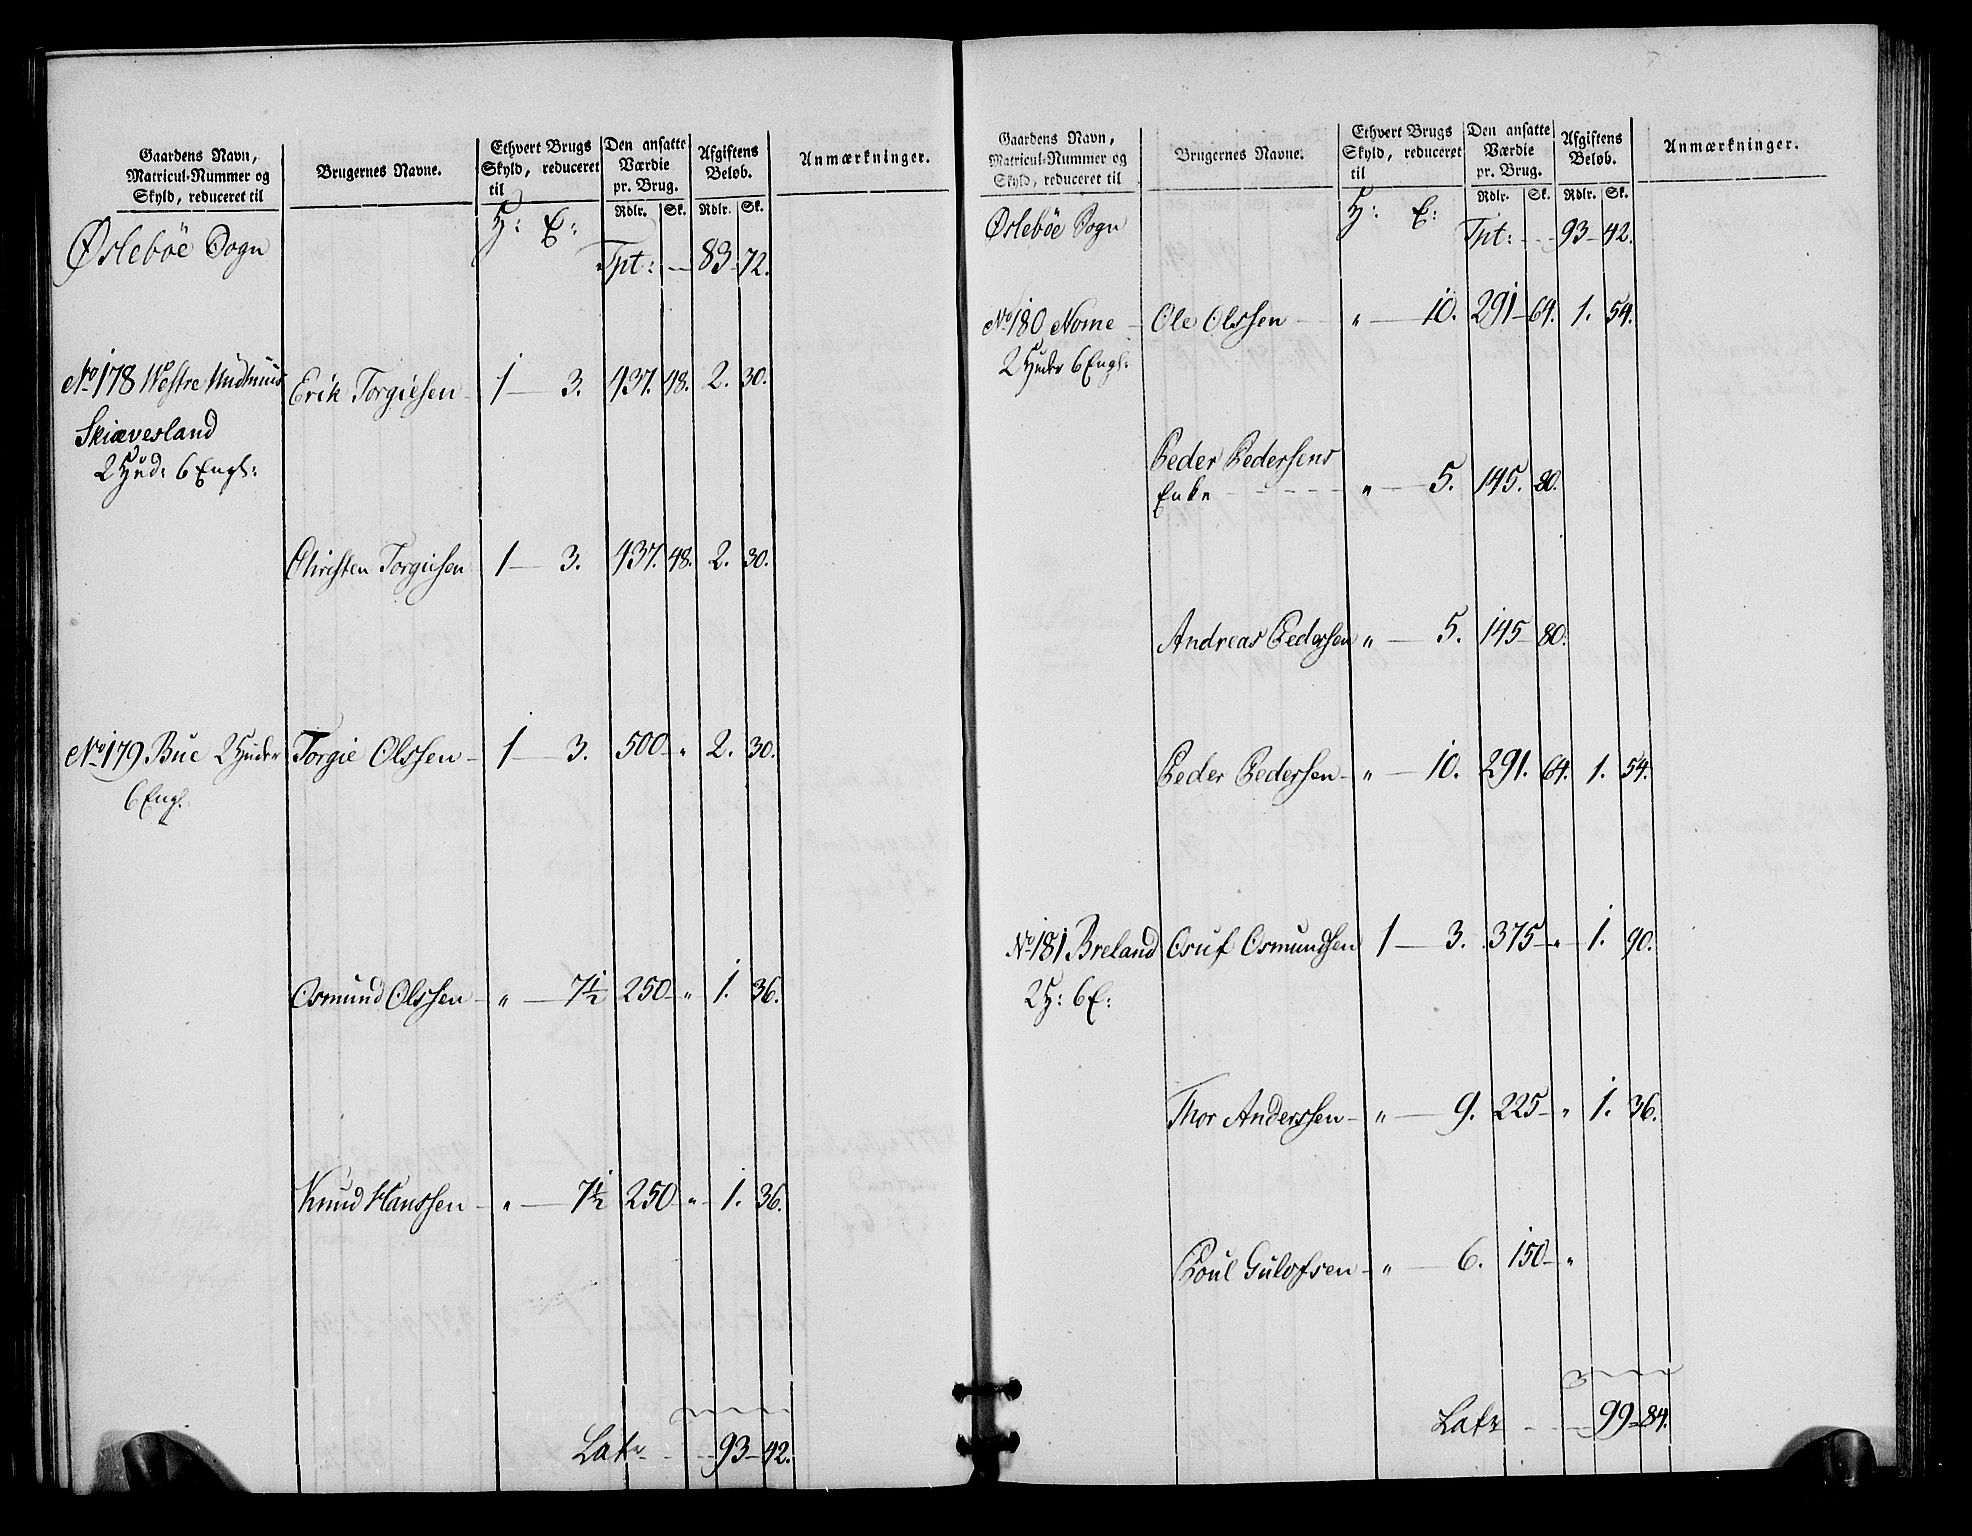 Gaardens Navn, Matricul-Nummer og Skyld, reduceret til | Brugernes Navne. | Ethvert Brugs Skyld, reduceret til | Den ansatte Værdie pr. Brug. Rdlr. Sk. | Afgiftens Beløb. Rdlr. Sk. | Anmærkninger.
Øslebøe Sogn H: E: Tpt: 83 72.
No 178 Westre Erik Torgiesen 1 3. 437. 48. 2. 30.
Skiævesland
2 Hud: 6 Engl:
Christen Torgiesen 1 3. 437. 48. 2. 30.
No 179 Bue 2 Huder Torgie Olssen 1 3. 500 " 2. 30.
6 Engl:
Osmund Olssen " 7½ 250 " 1. 36.
Knud Hanssen " 7½ 250 " 1. 36.
Late 93 42.
Gaardens Navn, Matricul-Nummer og Skyld, reduceret til | Brugernes Navne. | Ethvert Brugs Skyld, reduceret til | Den ansatte Værdie pr. Brug. Rdlr. Sk. | Afgiftens Beløb. Rdlr. Sk. | Anmærkninger.
Øslebøe Sogn H: E: Tpt: 93 42.
No 180 Nome Ole Olssen " 10. 291 64. 1. 54.
2 Huder 6 Engl:
Peder Pedersens
Enke " 5. 145. 80.
Andreas Pedersen " 5. 145 80.
Peder Pedersen " 10. 291. 64. 1. 54.
No 181 Breland Osuf Osmundsen 1 3. 375 " 1. 90.
2 H: 6 E:
Thor Anderssen " 9. 225 " 1. 36.
Poul Gulofsen " 6. 150 "
Late 99 84.